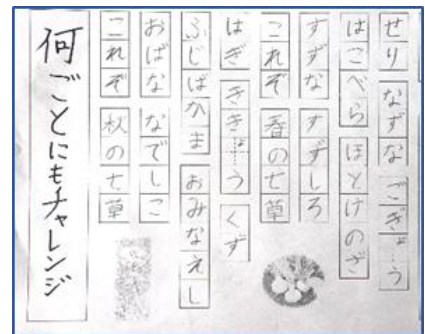 せり なずな ごぎょう
はこべら ほとけのざ
すずな すずしろ
これぞ 春の七草
はぎ ききょう くず
ふじばかま おみなえし
おばな なでしこ
これぞ 秋の七草
何ごとにもチャレンジ